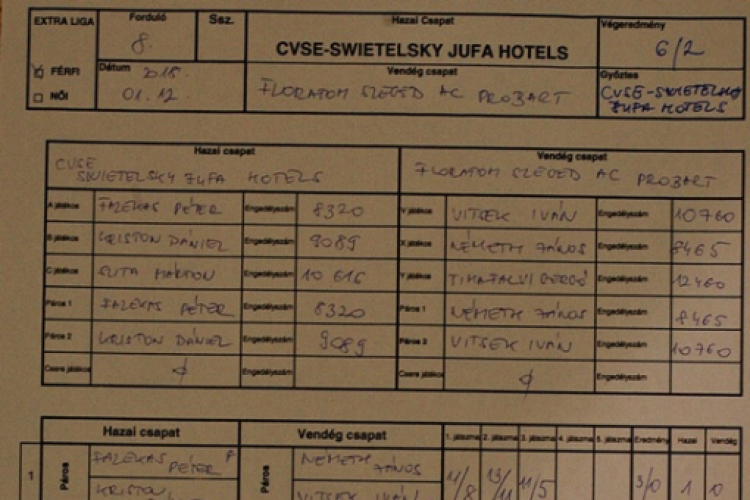 EXTRA LIGA
Forduló
8.
Ssz.
Hazai Csapat
CVSE-SWIETELSKY JUFA HOTELS
Végeredmény
6/2
FÉRFI
NŐI
Dátum 2018.
01.12.
Vendég csapat
FLORATOM SZEGED AC PROBART
Győztes
CVSE-SWIETELSKY
JUFA HOTELS
Hazai csapat
CVSE
SWIETELSKY JUFA HOTELS
Vendég csapat
FLORATOM SZEGED AC PROBART
A játékos FAZEKAS PÉTER Engedélyszám 8320 VITSEK IVÁN Engedélyszám 10760
B játékos KRISTON DÁNIEL Engedélyszám 9089 X játékos NÉMETH JÁNOS Engedélyszám 8465
C játékos SUTA MÁRTON Engedélyszám 10616 Y játékos Engedélyszám 12460
Páros 1 FAZEKAS PÉTER Engedélyszám 8320 Páros 1 NÉMETH JÁNOS Engedélyszám 8465
Páros 2 KRISTON DÁNIEL Engedélyszám 9089 Páros 2 VITSEK IVÁN Engedélyszám 10760
Csere játékos Engedélyszám Csere játékos Engedélyszám
Hazai csapat Vendég csapat 1. játszma 2. játszma 3. játszma 4. játszma 5. játszma Eredmény Hazai Vendég
1 Páros FAZEKAS PÉTER Páros NÉMETH JÁNOS 11/8 13/11 11/5 3/0 1 0
KRISTON VITSEK IVÁN